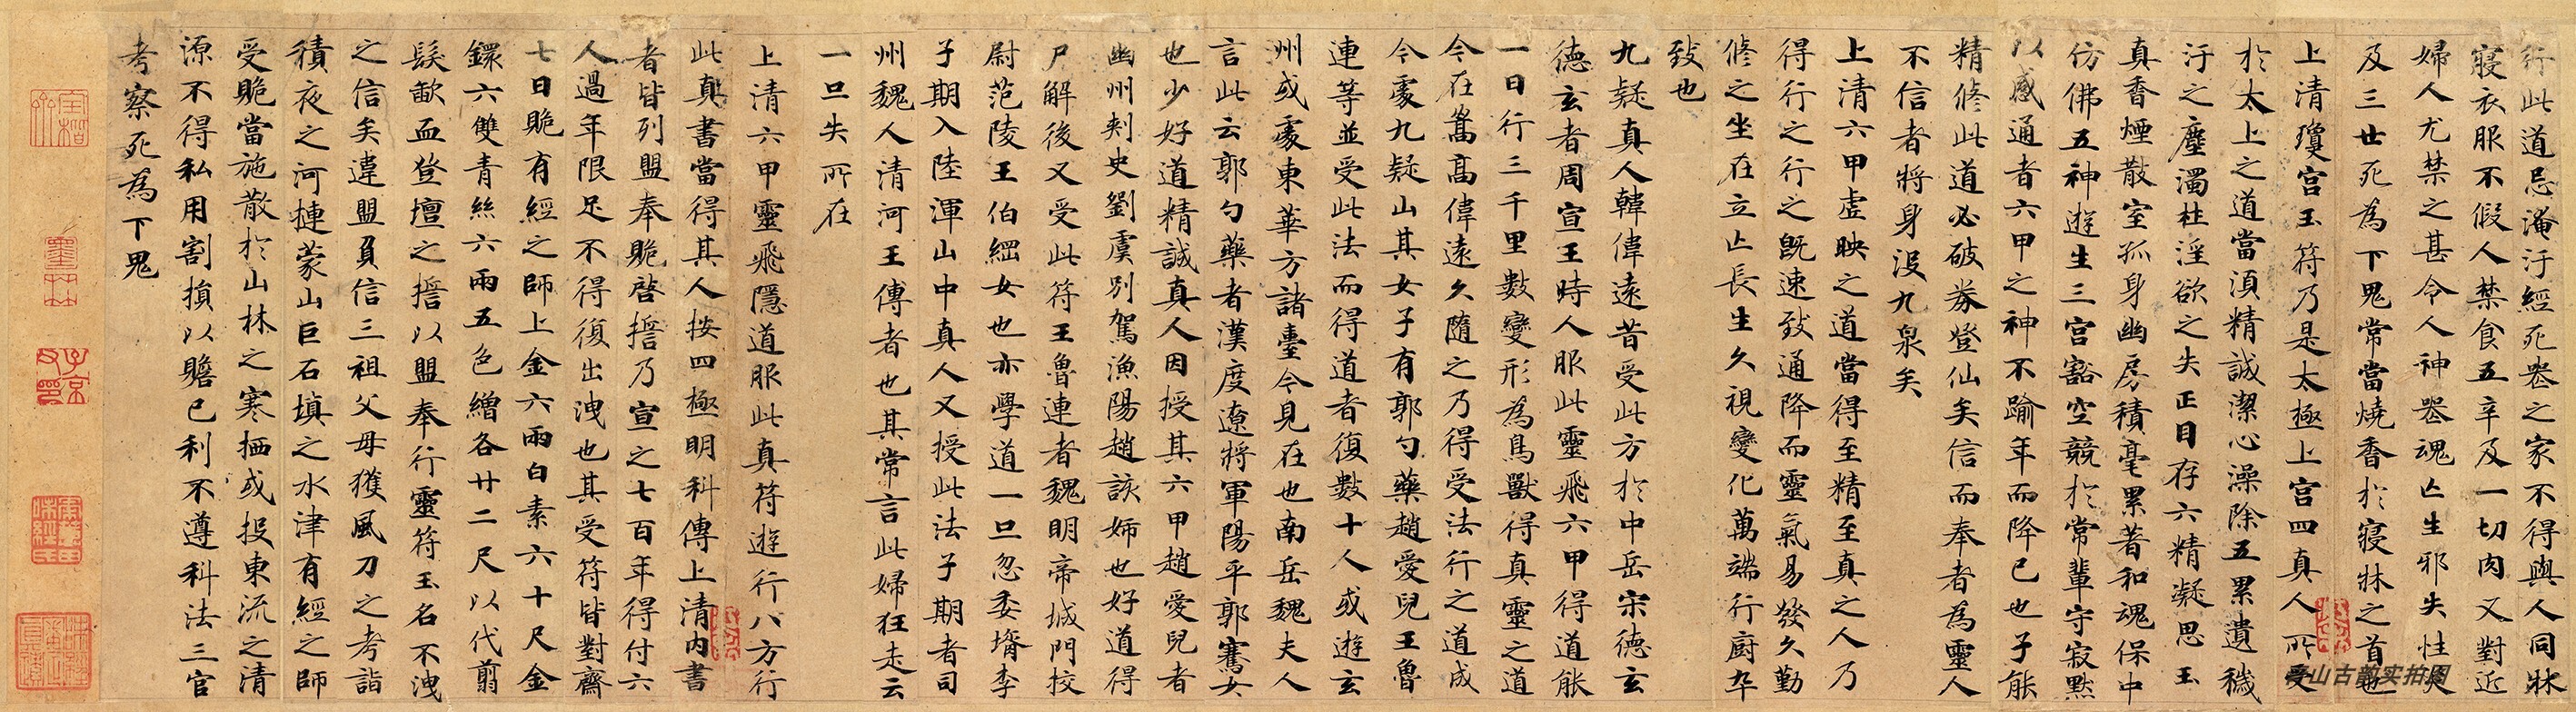 行此道忌淹汙經死喪之家不得與人同牀
寢衣服不假人禁食五辛及一切肉又對近
婦人尤禁之甚令人神喪魂亡生邪失性災
及三世死為下鬼常當燒香於寢牀之首也
上清瓊宮玉符乃是太極上宮四真人所受
於太上之道當須精誠潔心澡除五累遺穢
汙之塵濁杜淫欲之失正目存六精凝思玉
真香煙散室孤身幽房積毫累著和魂保中
仿佛五神遊生三宮豁空競於常輩守寂默
以感通者六甲之神不踰年而降已也子能
精修此道必破券登仙矣信而奉者為靈人
不信者將身沒九泉矣
上清六甲虛映之道當得至精至真之人乃
得行之行之既速致通降而靈氣易發久勤
修之坐在立亡長生久視變化萬端行廚卒
致也
九疑真人韓偉遠昔受此方於中岳宋德玄
德玄者周宣王時人服此靈飛六甲得道能
一日行三千里數變形為鳥獸得真靈之道
今在嵩高偉遠久隨之乃得受法行之道成
今處九疑山其女子有郭勺藥趙愛兒王魯
連等並受此法而得道者復數十人或遊玄
州或處東華方諸臺今見在也南岳魏夫人
言此云郭勺藥者漢度遼將軍陽平郭騫女
也少好道精誠真人因授其六甲趙愛兒者
幽州刺史劉虞別駕漁陽趙該姊也好道得
尸解後又受此符王魯連者魏明帝城門校
尉范陵王伯綱女也亦學道一旦忽委壻李
子期入陸渾山中真人又授此法子期者司
州魏人清河王傳者也其常言此婦狂走云
一旦失所在
上清六甲靈飛隱道服此真符遊行八方行
此真書當得其人按四極明科傳上清內書
者皆列盟奉贶啓誓乃宣之七百年得付六
人過年限足不得復出洩也其受符皆對齋
七日贶有經之師上金六兩白素六十尺金
鐶六雙青絲六兩五色繒各廿二尺以代翦
髮歃血登壇之誓以盟奉行靈符玉名不洩
之信矣違盟負信三祖父母獲風刀之考詣
積夜之河摙蒙山巨石填之水津有經之師
受贶當施散於山林之寒栖或投東流之清
源不得私用割損以贍己利不遵科法三官
考察死為下鬼
墨林
子京父印
山古韵实拍图